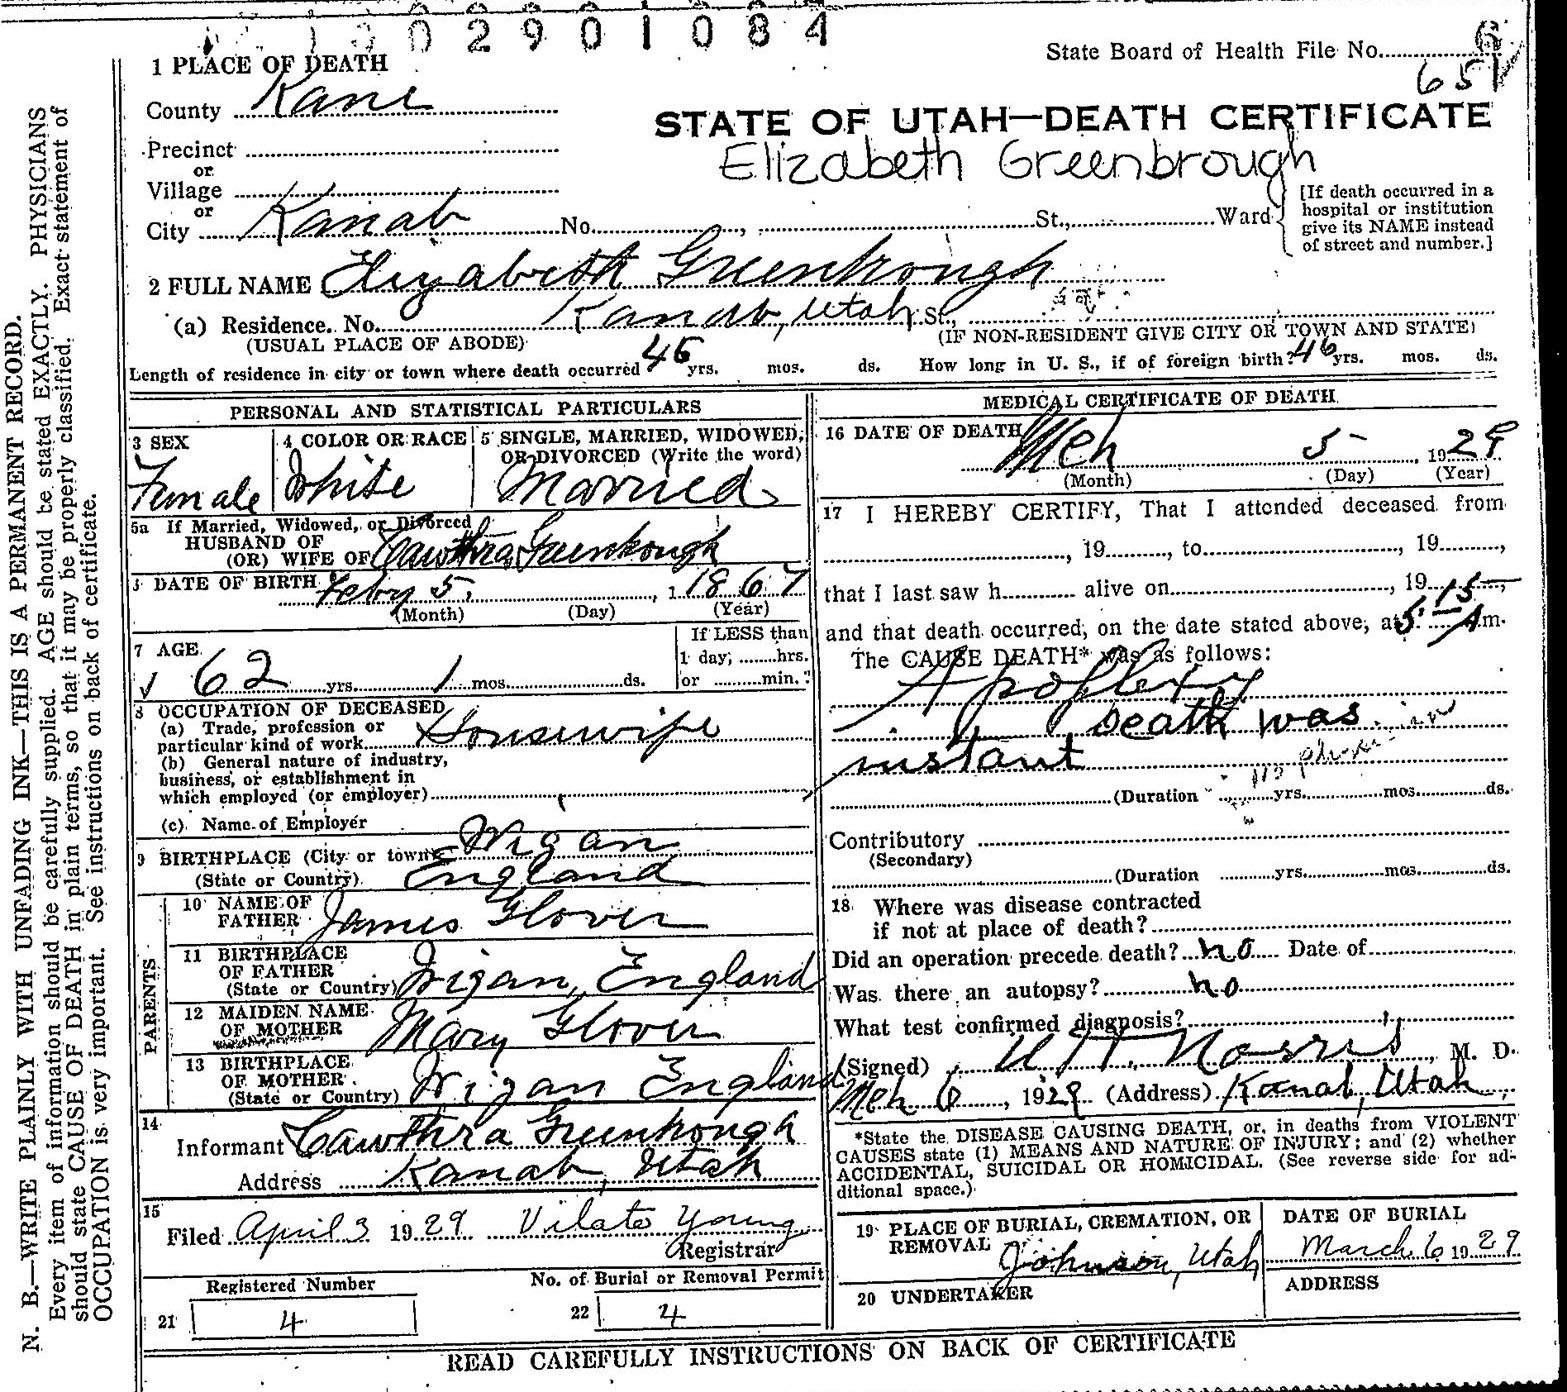 0 0 2 9 0 1 0 8 4
State Board of Health File No. 6
651
1 PLACE OF DEATH
County Kane
STATE OF UTAH—DEATH CERTIFICATE
Elizabeth Greenbrough
Precinct
or
Village
or
City Kanab No. , St., Ward
[If death occurred in a
hospital or institution
give its NAME instead
of street and number.]
2 FULL NAME Elizabeth Greenhrough
(a) Residence. No. Kanab, Utah St.,
(USUAL PLACE OF ABODE) (IF NON-RESIDENT GIVE CITY OR TOWN AND STATE)
Length of residence in city or town where death occurred 45 yrs. mos. ds. How long in U. S., if of foreign birth? 46 yrs. mos. ds.
PERSONAL AND STATISTICAL PARTICULARS
3 SEX
Female
4 COLOR OR RACE
White
5 SINGLE, MARRIED, WIDOWED,
OR DIVORCED (Write the word)
Married
5a If Married, Widowed, or Divorced
HUSBAND OF
(OR) WIFE OF Cawthra Greenhough
DATE OF BIRTH Feby 5, , 1867
(Month) (Day) (Year)
7 AGE
62 yrs. 1 mos. ds.
If LESS than
1 day, hrs.
or min.?
8 OCCUPATION OF DECEASED
(a) Trade, profession or
particular kind of work Housewife
(b) General nature of industry,
business, or establishment in
which employed (or employer)
(c) Name of Employer
9 BIRTHPLACE (City or town) Wigan
(State or Country) England
PARENTS
10 NAME OF
FATHER James Glover
11 BIRTHPLACE
OF FATHER
(State or Country) Wigan, England
12 MAIDEN NAME
OF MOTHER Mary Glover
13 BIRTHPLACE
OF MOTHER
(State or Country) Wigan England
14
Informant Cawthra Greenhough
Address Kanab, Utah
15
Filed April 3 1929 Vilate Young
Registrar
Registered Number No. of Burial or Removal Permit
21 4 22 4
MEDICAL CERTIFICATE OF DEATH
16 DATE OF DEATH Mch 5 , 1929
(Month) (Day) (Year)
17 I HEREBY CERTIFY, That I attended deceased from
, 19 , to , 19 ,
that I last saw h alive on , 19 ,
and that death occurred, on the date stated above, at 5:15 A m.
The CAUSE DEATH* was as follows:
Apoplexy
Death was in
instant
no physi
(Duration yrs. mos. ds.
Contributory
(Secondary)
(Duration yrs. mos. ds.
18 Where was disease contracted
if not at place of death?
Did an operation precede death? no Date of
Was there an autopsy? no
What test confirmed diagnosis?
(Signed) Norris , M. D.
Mch 6 , 1929 (Address) Kanab, Utah ,
*State the DISEASE CAUSING DEATH, or, in deaths from VIOLENT
CAUSES state (1) MEANS AND NATURE OF INJURY; and (2) whether
ACCIDENTAL, SUICIDAL OR HOMICIDAL. (See reverse side for ad-
ditional space.)
19 PLACE OF BURIAL, CREMATION, OR
REMOVAL Johnson, Utah
DATE OF BURIAL
March 6 1929
20 UNDERTAKER
ADDRESS
READ CAREFULLY INSTRUCTIONS ON BACK OF CERTIFICATE
N. B.—WRITE PLAINLY WITH UNFADING INK—THIS IS A PERMANENT RECORD.
Every item of information should be carefully supplied. AGE should be stated EXACTLY. PHYSICIANS
should state CAUSE OF DEATH in plain terms, so that it may be properly classified. Exact statement of
OCCUPATION is very important. See instructions on back of certificate.